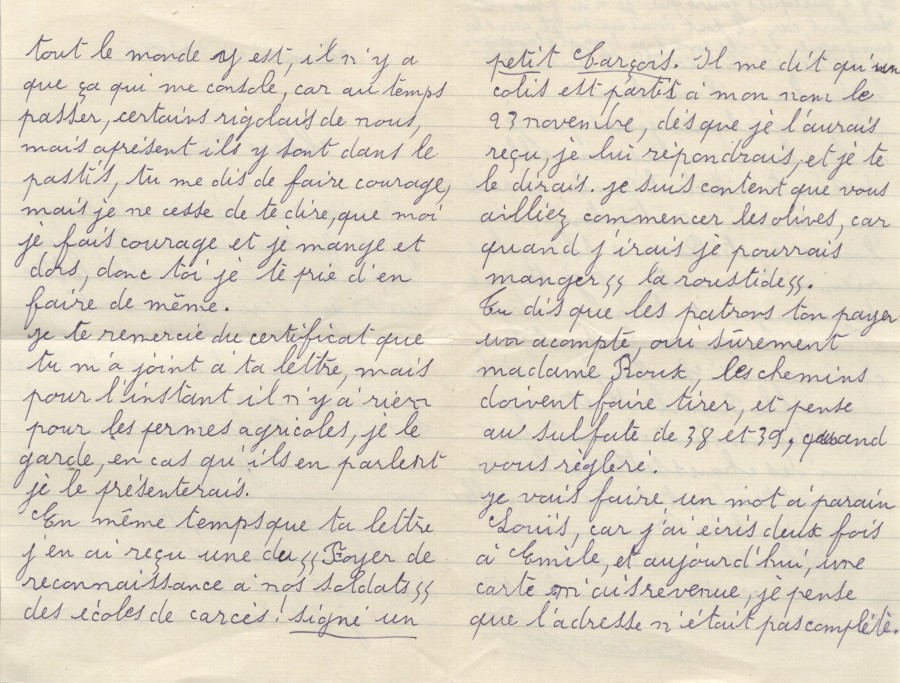 tout le monde y est, il n'y a
que ça qui me console, car au temps
passer, certains rigolais de nous,
mais aprésent ils y sont dans le
pastis, tu me dis de faire courage,
mais je ne cesse de te dire, que moi
je fais courage et je mange et
dors, donc toi je te prie d'en
faire de même.
je te remercie du certificat que
tu m'a joint à ta lettre, mais
pour l'instant il n'y a rien
pour les fermes agricoles, je le
garde, en cas qu'ils en parlent
je le présenterais.
En même temps que ta lettre
j'en ai reçu une du "Foyer de
reconnaissance à nos soldats"
des écoles de carcès! signé un
petit Carçois. Il me dit qu'un
colis est partis à mon nom le
23 novembre, dès que je l'aurais
reçu, je lui répondrais, et je te
le dirais. je suis content que vous
ailliez commencer les olives, car
quand j'irais je pourrais
manger " la roustide".
Tu dis que les patrons t'on payer
un acompte, oui sûrement
madame Roux, les chemins
doivent faire tirer, et pense
au sulfate de 38 et 39, quand
vous régleré.
je vais faire un mot à parain
Louis, car j'ai écris deux fois
à Emile, et aujourd'hui, une
carte m'ais revenue, je pense
que l'adresse n'était pas complète.